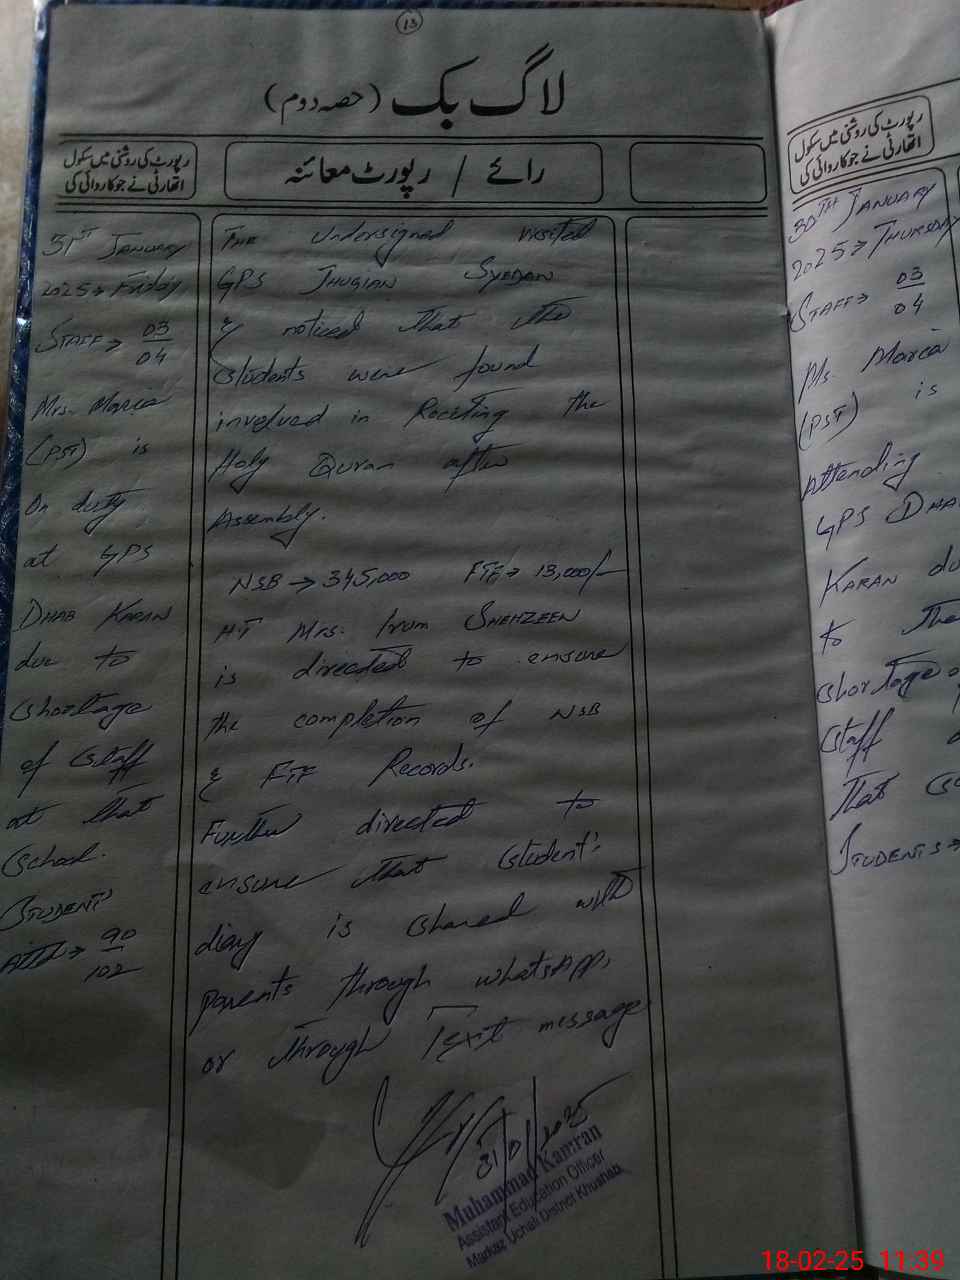 13
لاگ بک (حصہ دوم)
رپورٹ کی روشنی میں سکول
اتھارٹی نے جو کاروائی کی
رائے / رپورٹ معائنہ
31ST JANUARY
2025 → Friday
STAFF → 03/04
Mrs. Maria
(PST) is
On duty
at GPS
DHAB KARAN
due to
shortage
of staff
at that
School.
STUDENT'
Att → 90/102
THE Undersigned visited
GPS JHUGIAN SYEDAN
& noticed that the
students were found
involved in Reciting the
Holy Quran after
Assembly.
NSB → 345,000 FTF → 13,000/-
HT Mrs. Irum SHEHZEEN
is directed to ensure
the completion of NSB
& FTF Records.
Further directed to
ensure that student's
diary is shared with
parents through whatsApp,
or through Text message
31/01/2025
Muhammad Kamran
Assistant Education Officer
Markaz Uchali District Khushab
رپورٹ کی روشنی میں سکول
اتھارٹی نے جو کاروائی کی
30TH JANUARY
2025 → THURSDAY
STAFF → 03/04
Ms. Maria
(PST) is
Attending
GPS DHA
KARAN du
to the
shortage o
staff
that sc
STUDENTS →
18-02-25 11:39